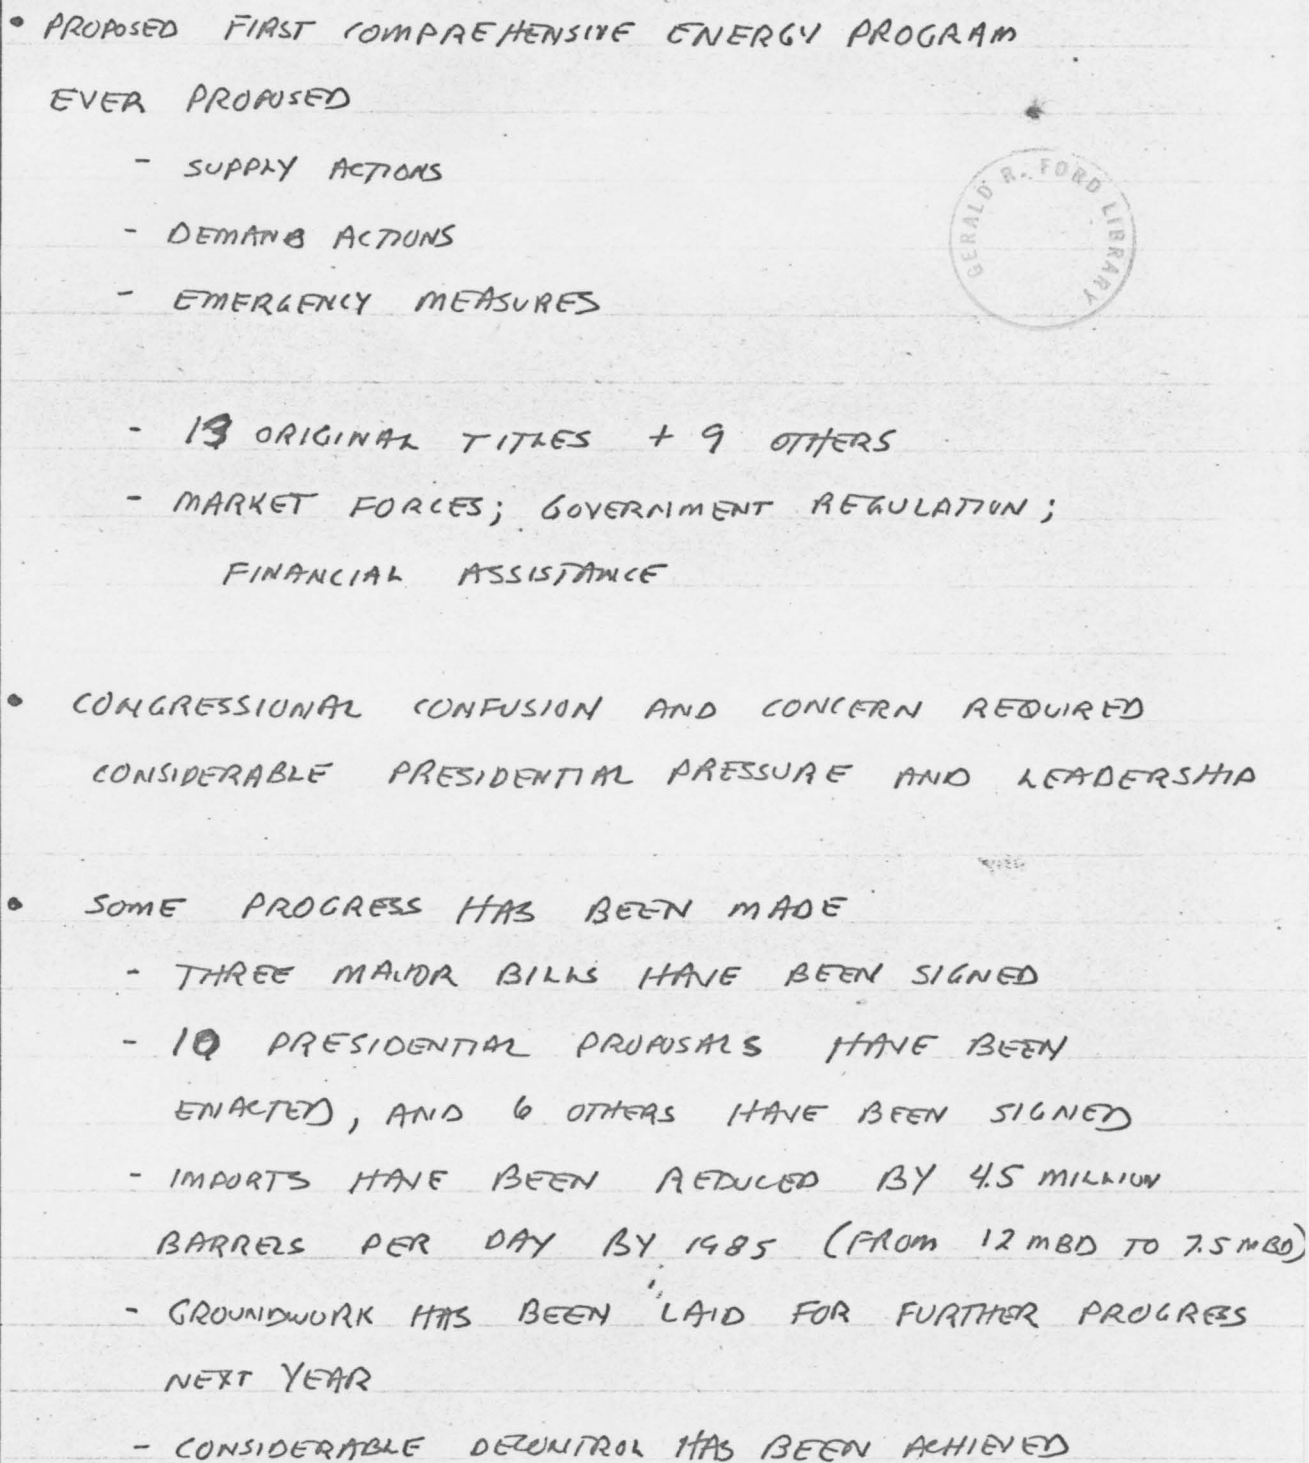 • PROPOSED FIRST COMPREHENSIVE ENERGY PROGRAM
EVER PROPOSED
- SUPPLY ACTIONS
GERALD R. FORD LIBRARY
- DEMAND ACTIONS
- EMERGENCY MEASURES
- 13 ORIGINAL TITLES + 9 OTHERS
- MARKET FORCES; GOVERNMENT REGULATION;
FINANCIAL ASSISTANCE
• CONGRESSIONAL CONFUSION AND CONCERN REQUIRED
CONSIDERABLE PRESIDENTIAL PRESSURE AND LEADERSHIP
• SOME PROGRESS HAS BEEN MADE
- THREE MAJOR BILLS HAVE BEEN SIGNED
- 10 PRESIDENTIAL PROPOSALS HAVE BEEN
ENACTED, AND 6 OTHERS HAVE BEEN SIGNED
- IMPORTS HAVE BEEN REDUCED BY 4.5 MILLION
BARRELS PER DAY BY 1985 (FROM 12 MBD TO 7.5 MBD)
- GROUNDWORK HAS BEEN LAID FOR FURTHER PROGRESS
NEXT YEAR
- CONSIDERABLE DECONTROL HAS BEEN ACHIEVED